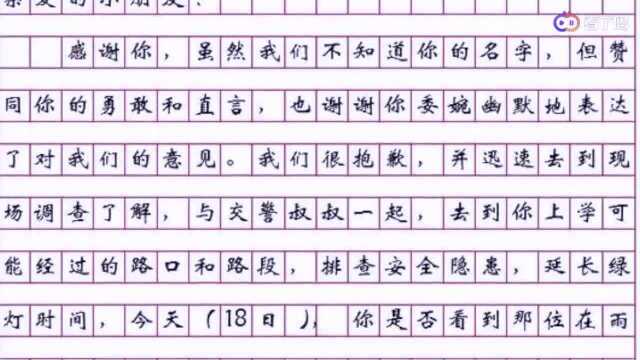 亲爱的小朋友：
感谢你，虽然我们不知道你的名字，但赞
同你的勇敢和直言，也谢谢你委婉幽默地表达
了对我们的意见。我们很抱歉，并迅速去到现
场调查了解，与交警叔叔一起，去到你上学可
能经过的路口和路段，排查安全隐患，延长绿
灯时间，今天（18日），你是否看到那位在雨